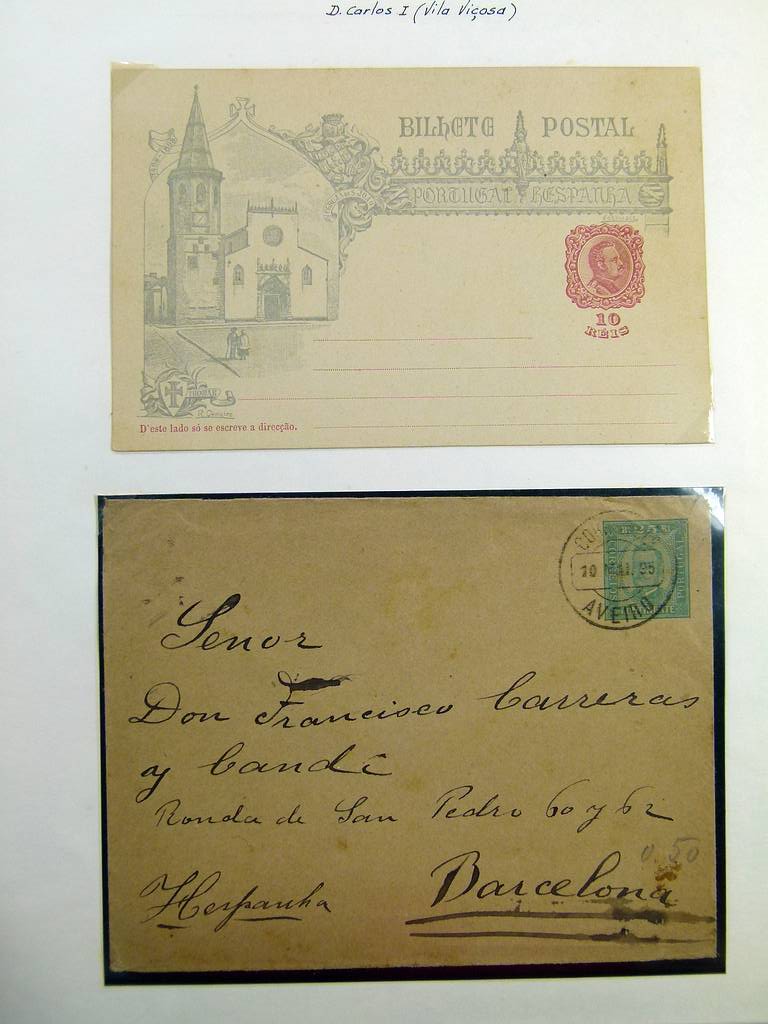 D. Carlos I (Vila Viçosa)
BILHETE POSTAL
PORTUGAL HESPANHA
10
RÉIS
THOMAR
D'este lado só se escreve a direcção.
25
10 MAI. 95
AVEIRO
Senor
Don Francisco Carreras
y Candi
Ronda de San Pedro 60 y 62
0.50
Barcelona
Hespanha